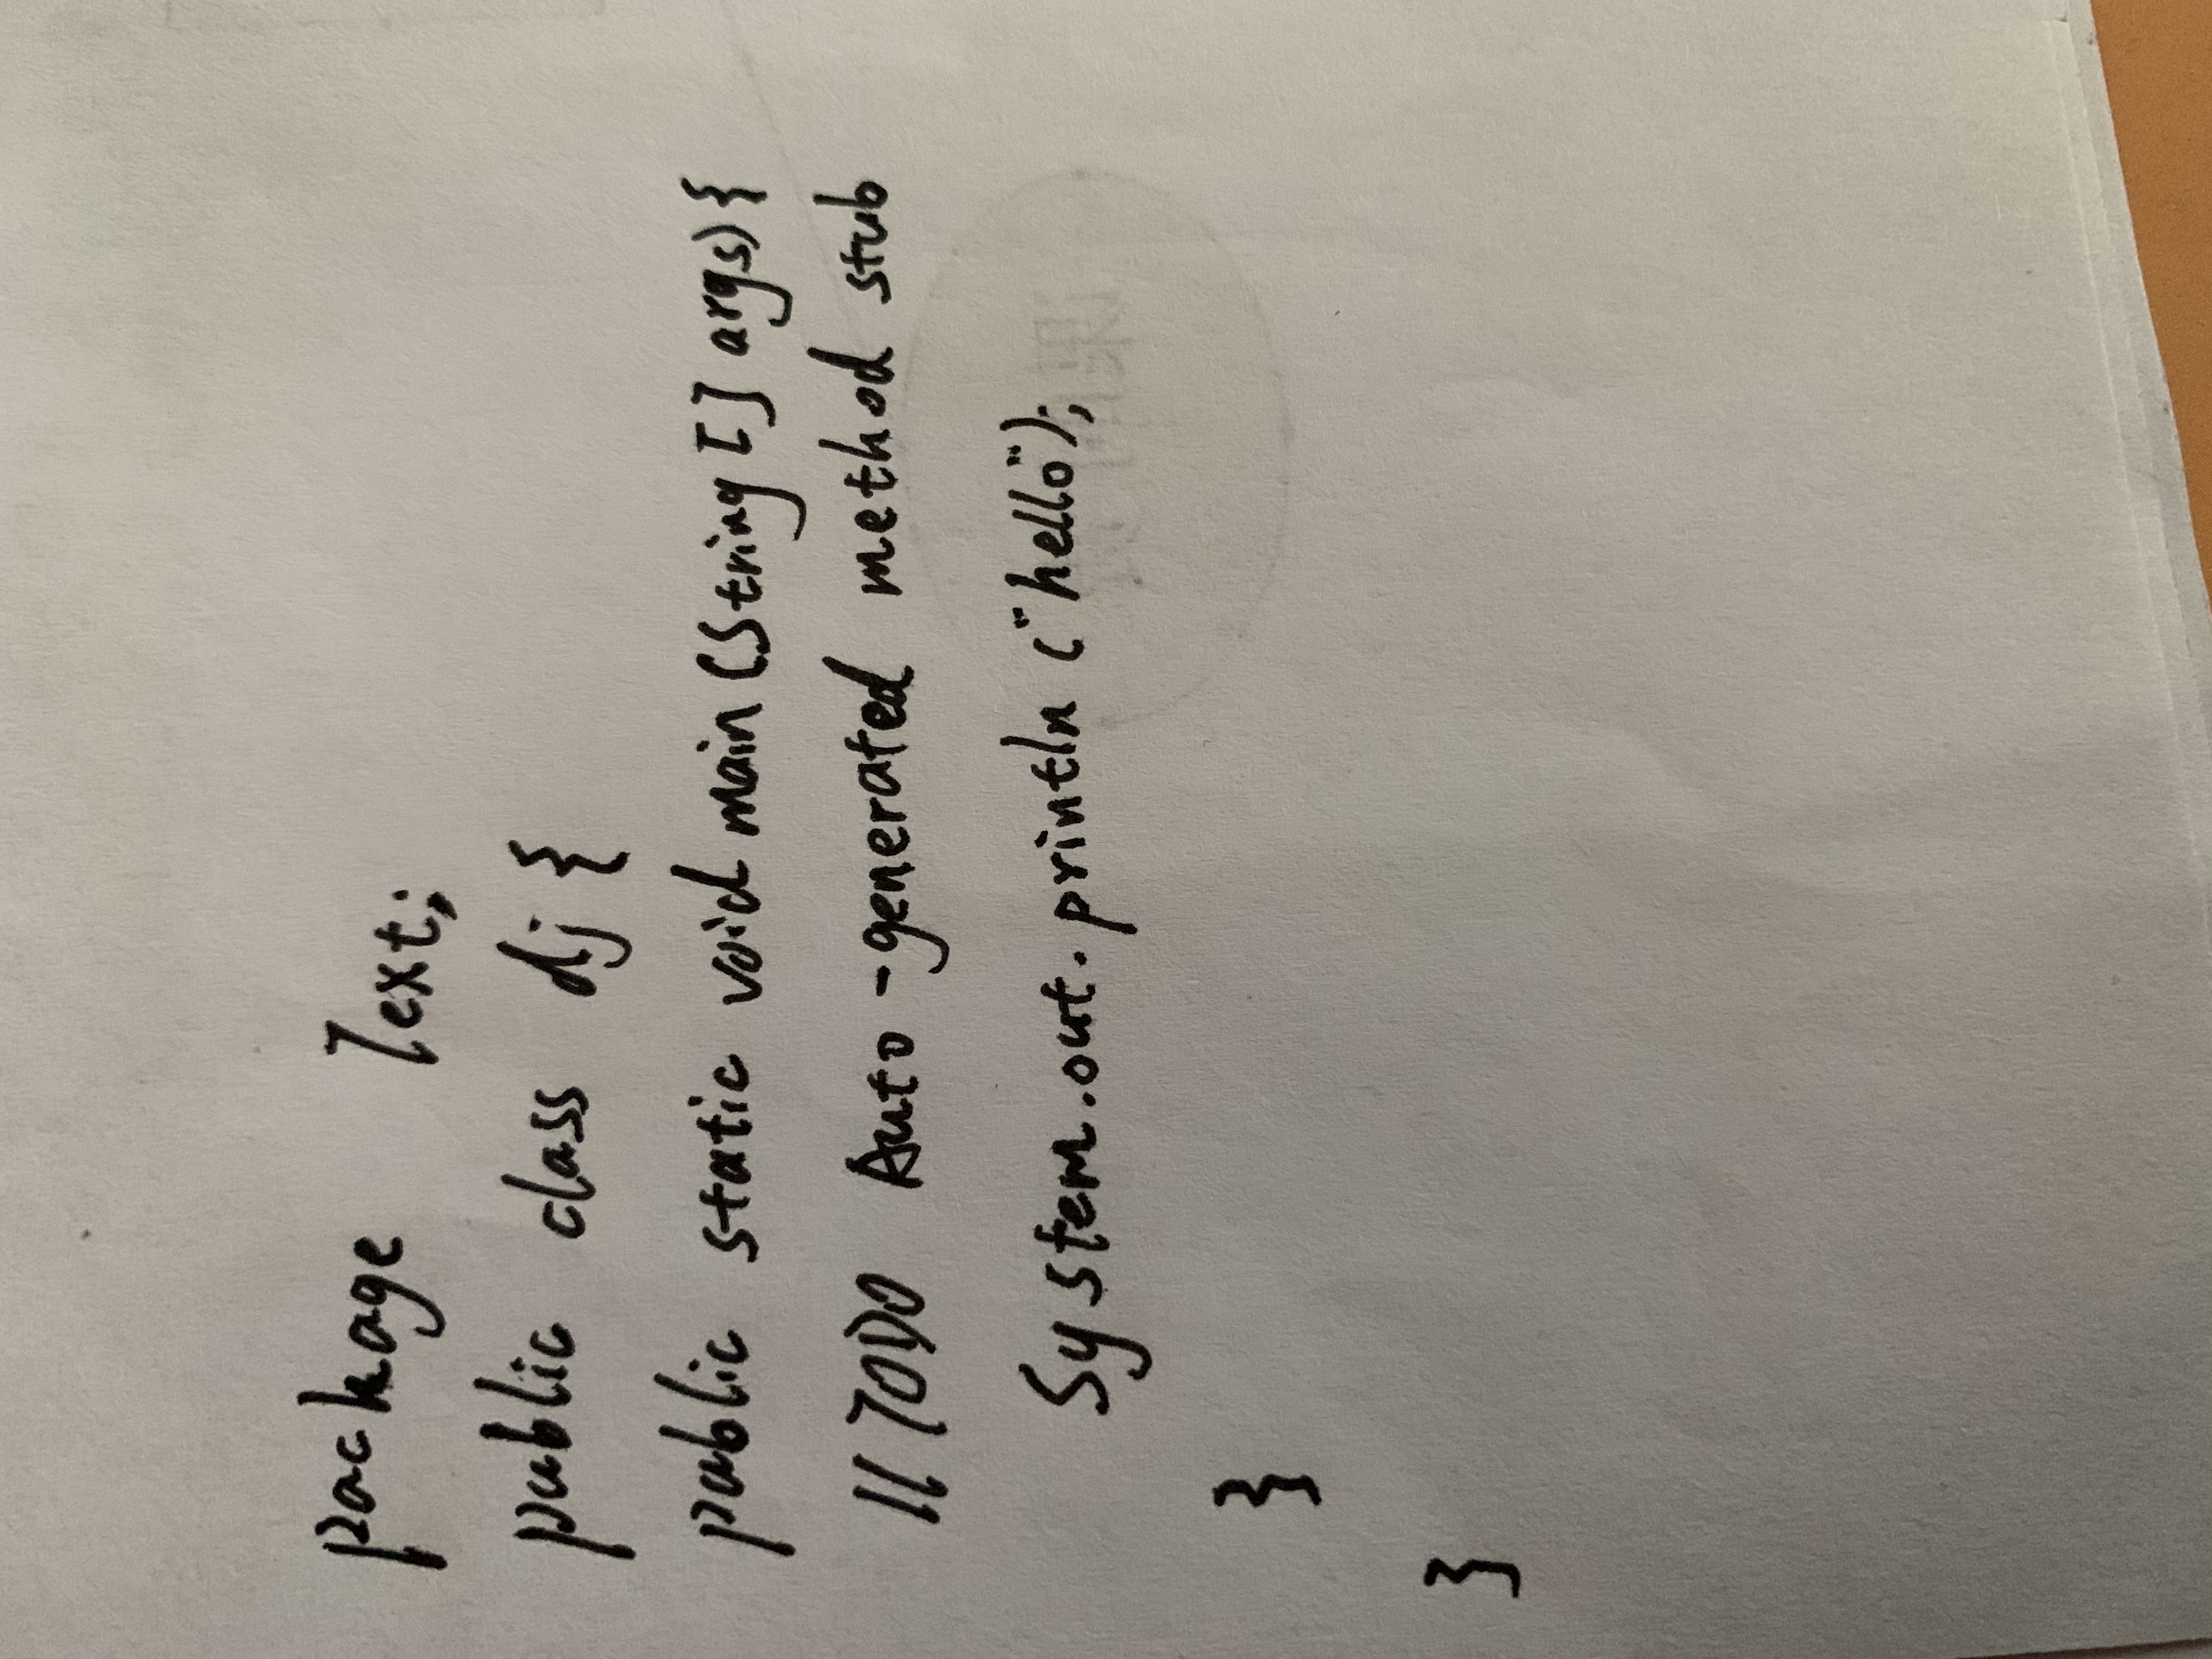 package Text;
public class dj {
public static void main(String[] args){
// TODO Auto-generated method stub
System.out.println("hello");
}
}